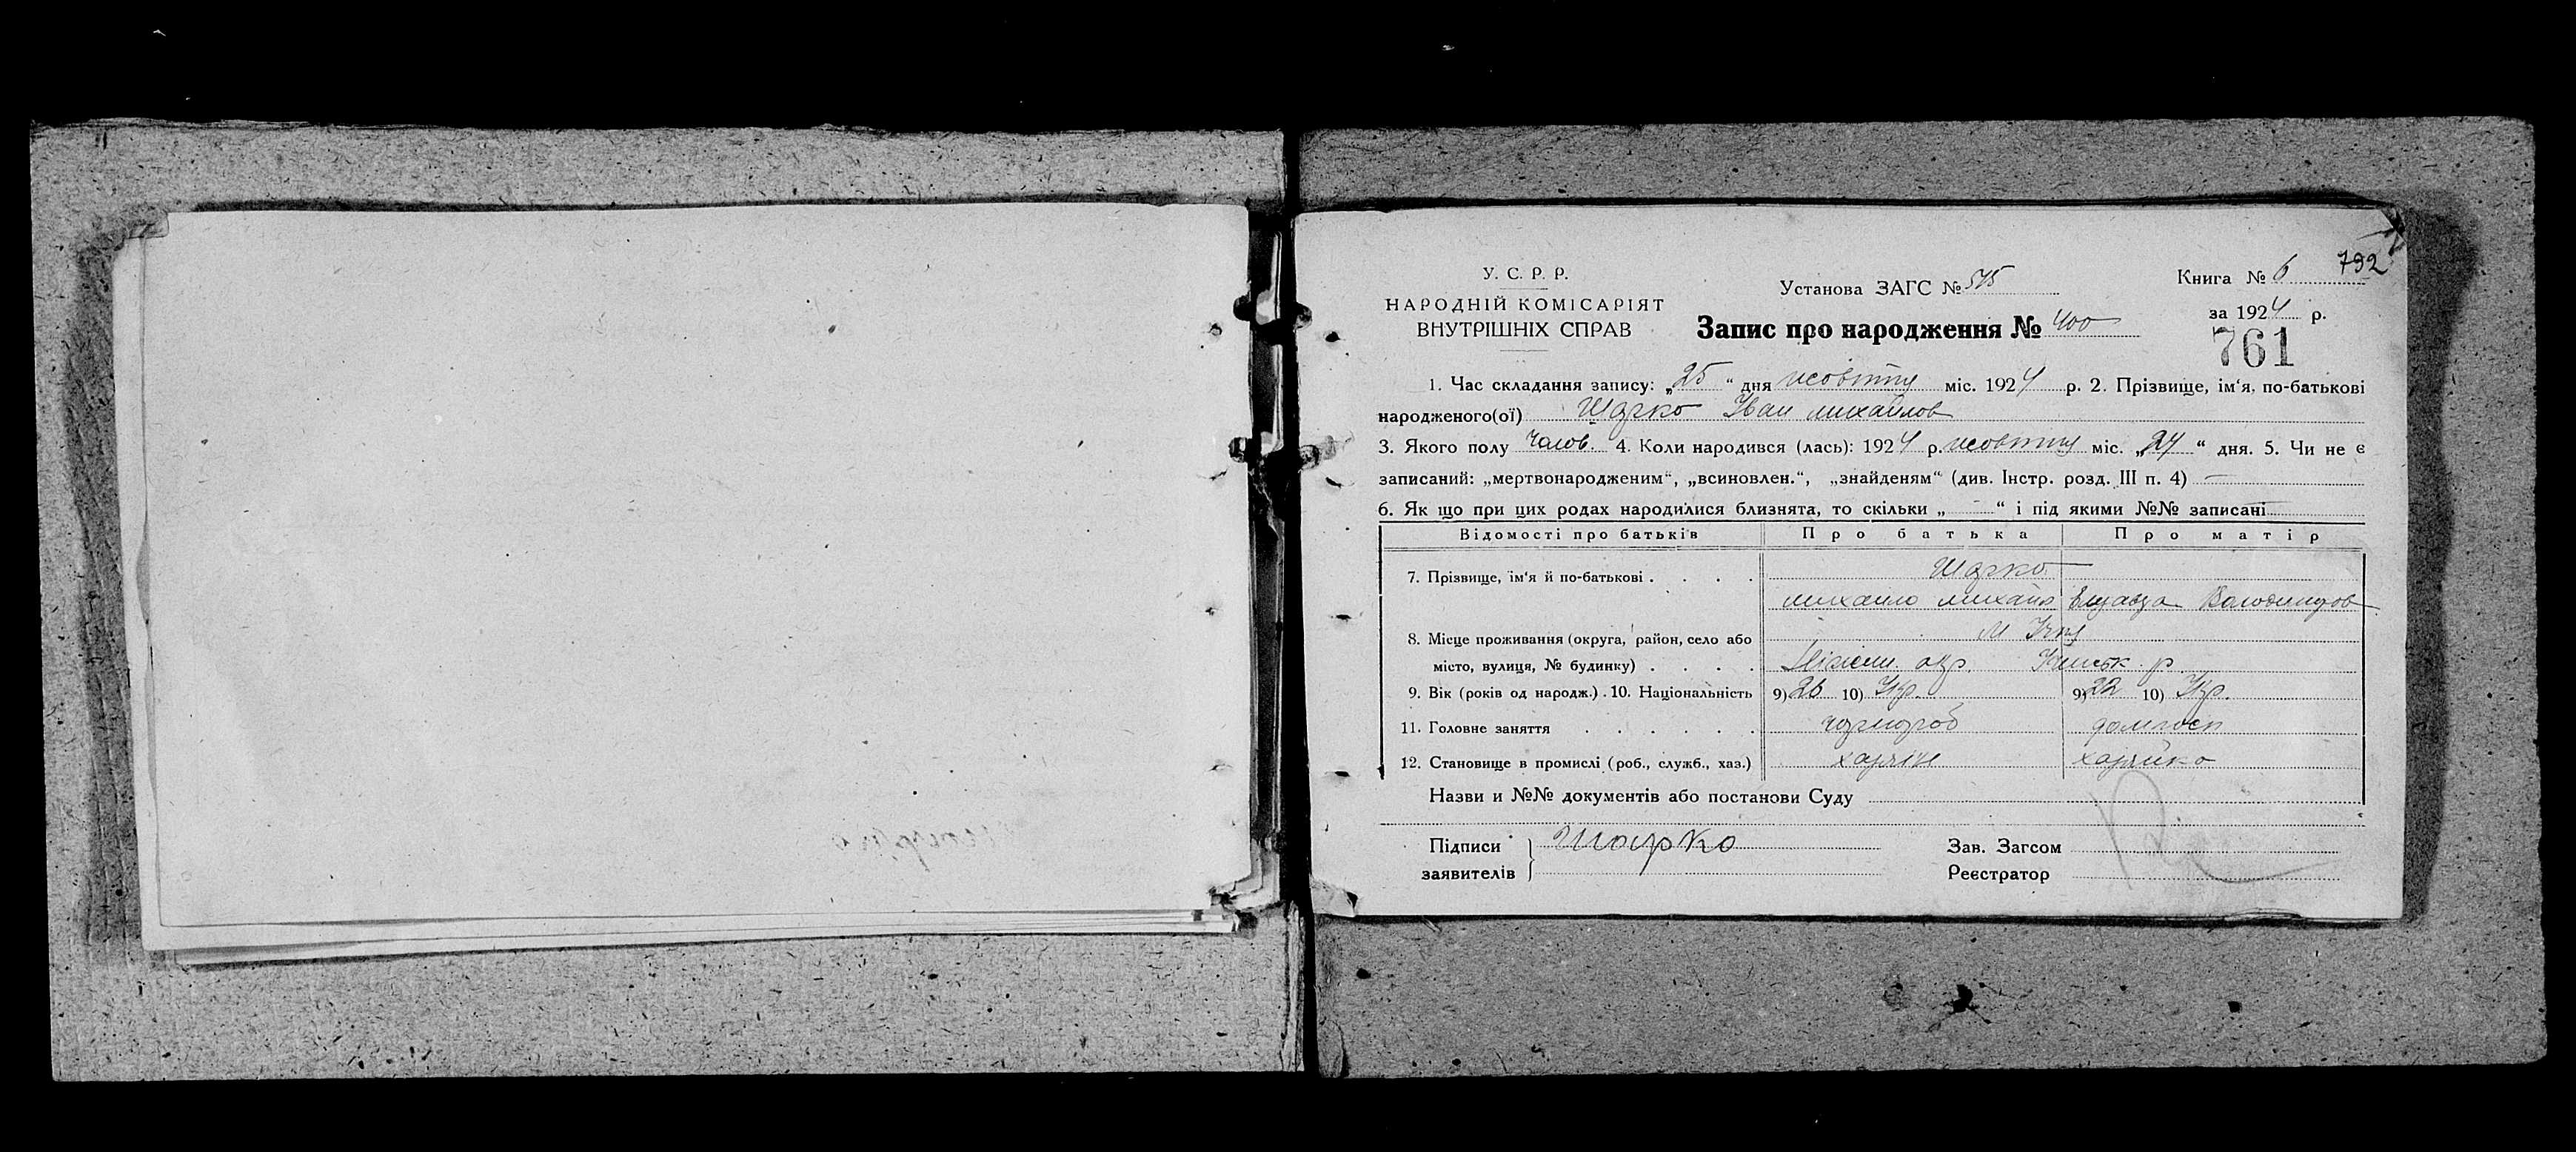 792
У. С. Р. Р.
Установа ЗАГС № 575
Книга № 6
НАРОДНІЙ КОМІСАРІЯТ
ВНУТРІШНІХ СПРАВ
Запис про народження № 400
за 1924 р.
761
1. Час складання запису: „25“ дня жовтня міс. 1924 р. 2. Прізвище, ім‘я, по-батькові
народженого(ої) Шарко Іван Михайлов
3. Якого полу чолов. 4. Коли народився (лась): 1924 р. жовтня міс. „24“ дня. 5. Чи не є
записаний: „мертвонародженим“, „всиновлен.“, „знайденям“ (див. Інстр. розд. III п. 4) —
6. Як що при цих родах народилися близнята, то скільки „ “ і під якими №№ записані
Відомості про батьків Про батька Про матір
7. Прізвище, ім‘я й по-батькові Шарко
Михайло Михайл Володимиров
8. Місце проживання (округа, район, село або М Ічня
місто, вулиця, № будинку) окр. р
9. Вік (років од народж.) . 10. Національність 9) 26 10) Укр. 9) 22 10) Укр.
11. Головне заняття чорнороб домгосп
12. Становище в промислі (роб., служб., хаз.) хазяїн хазяйка
Назви и №№ документів або постанови Суду
Підписи заявителів Шарко
Зав. Загсом
Реєстратор